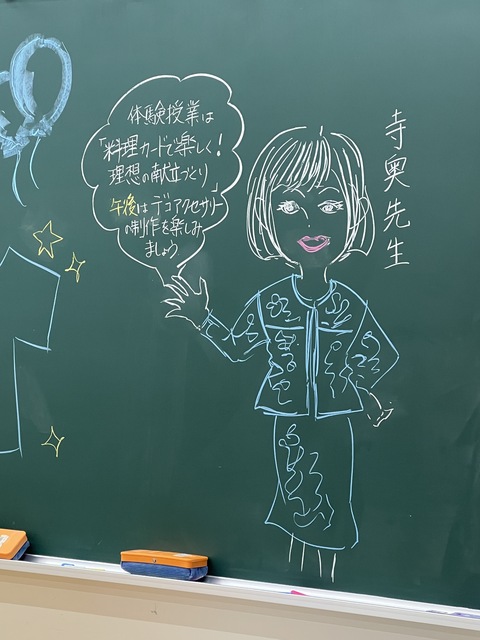 体験授業は
「料理カードで楽しく!
理想の献立づくり」
午後はデコアクセサリー
の制作を楽しみ
ましょう
寺奥先生